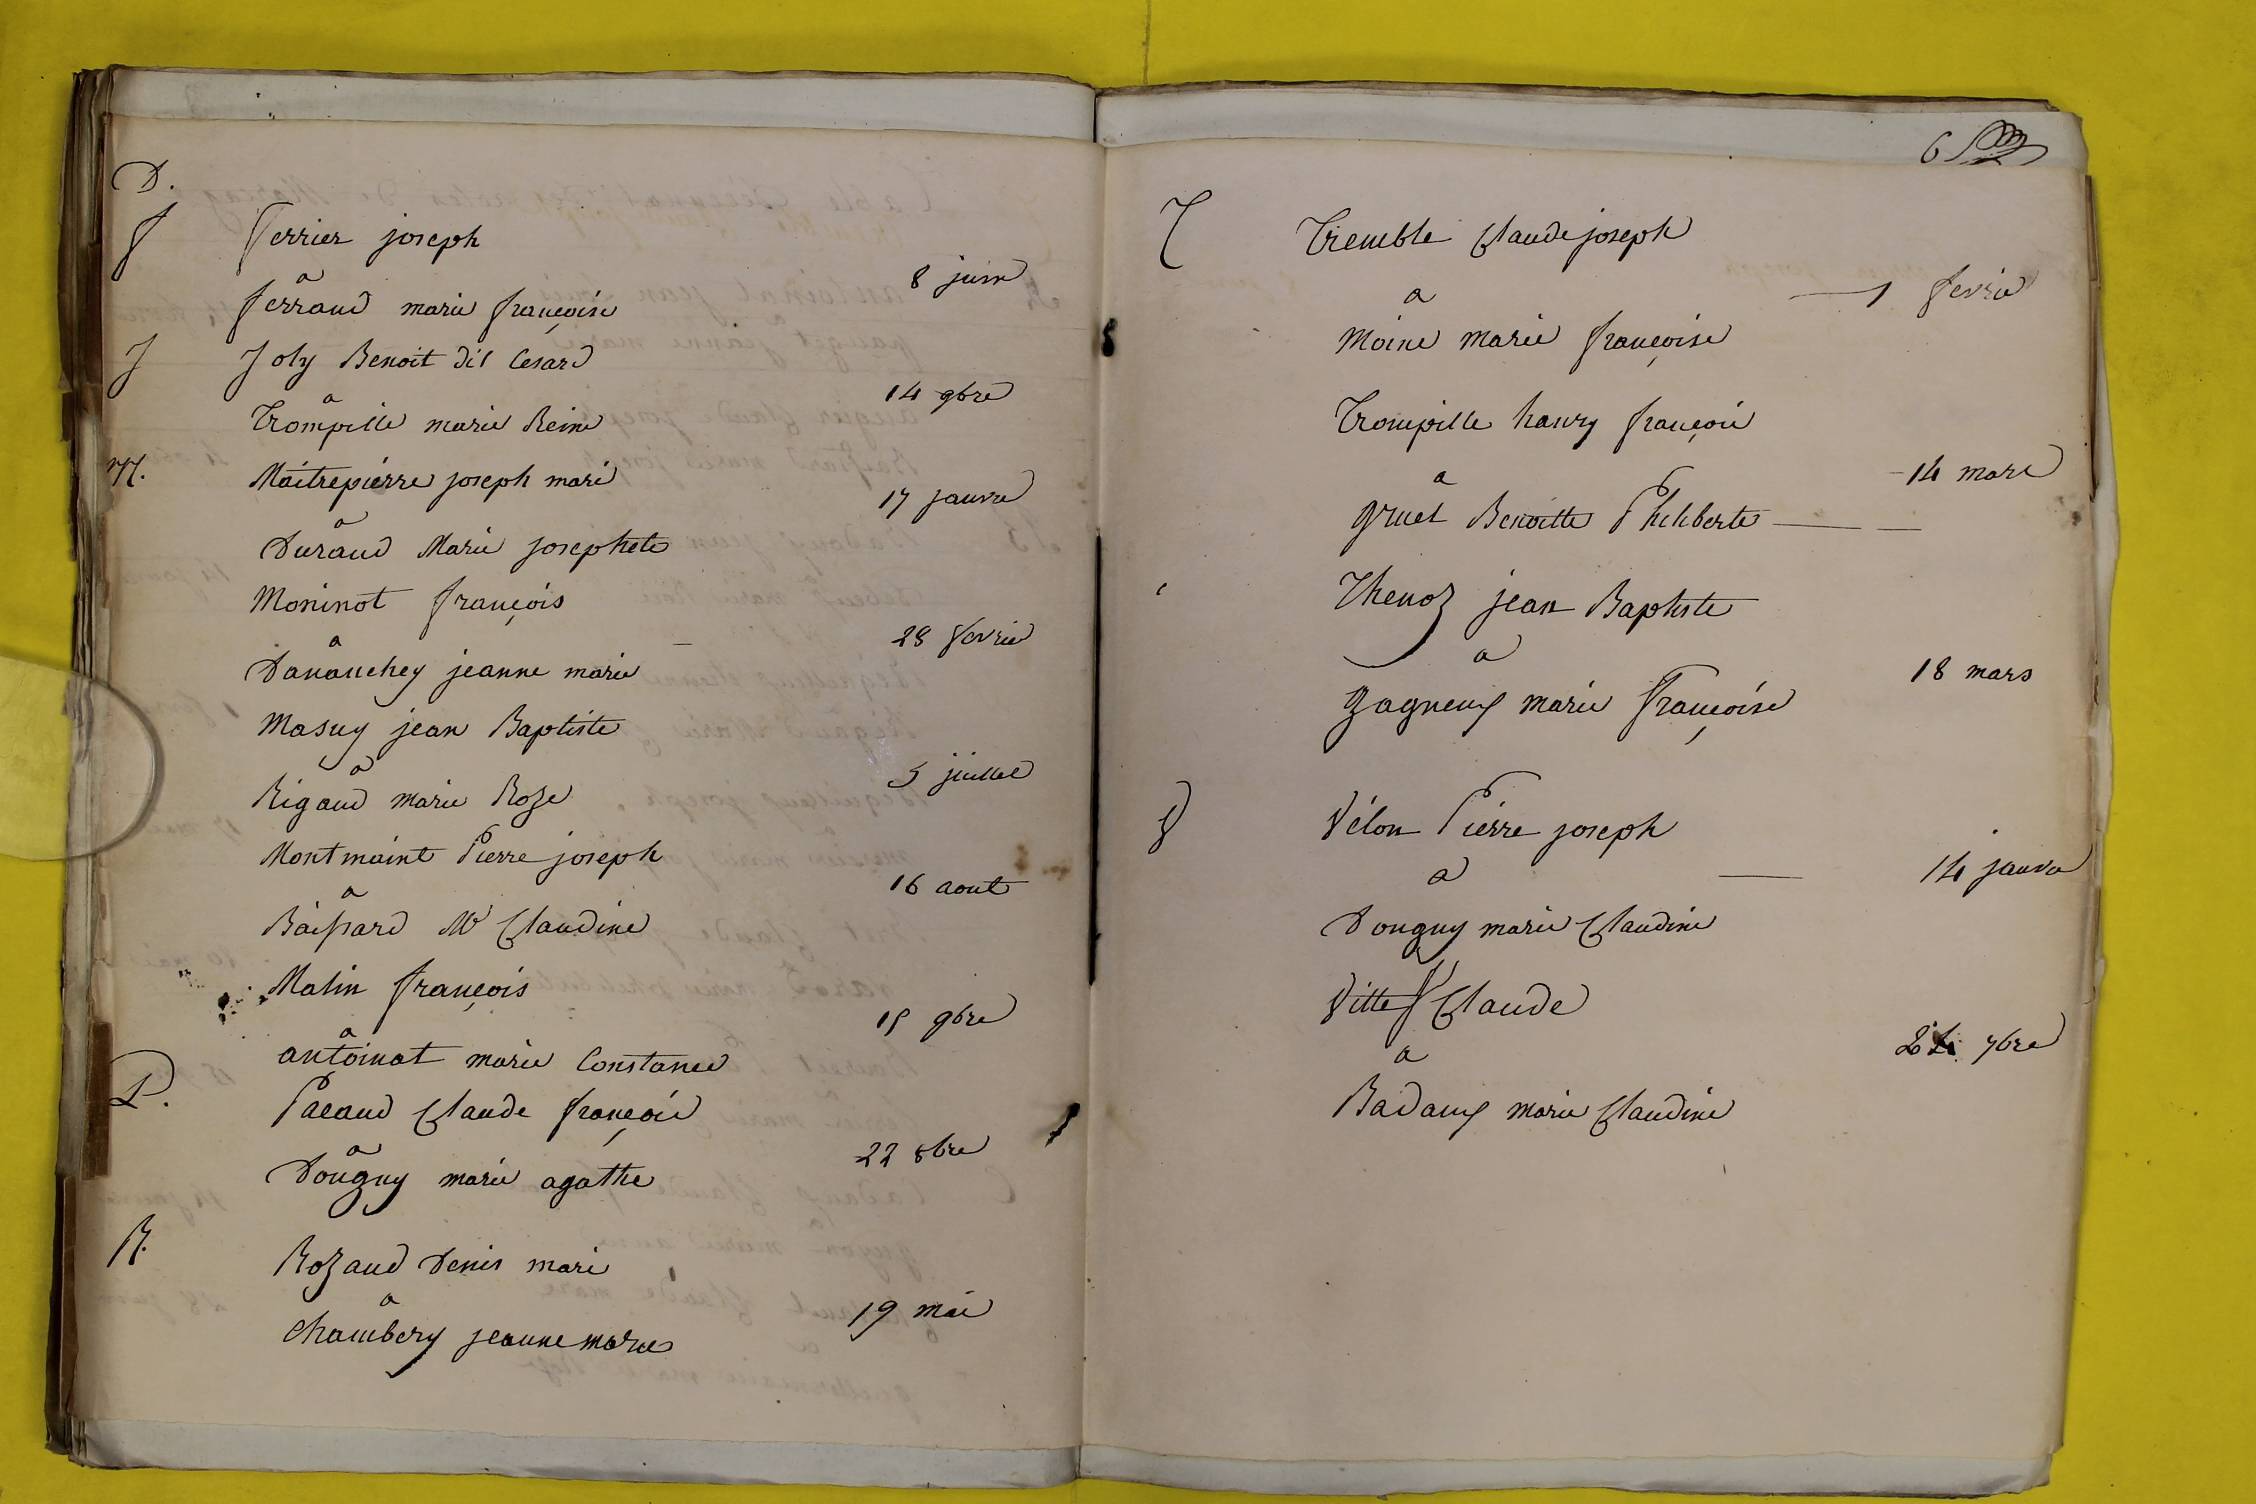 D.
F Ferrier joseph
a 8 juin
ferraud marie françoise
J Joly Benoit dit Cesard
a 14 9bre
Trompille marie Reine
M. Maitrepierre joseph marie
a 17 janvre
Duraud Marie josephete
Moninot françois
a 28 fevrie
Dananchey jeanne marie
Masuy jean Baptiste
a 5 juillet
Rigaud marie Roze
Montmaint Pierre joseph
a 16 aout
Baissard Me Claudine
Malin françois
a 15 9bre
antoinat marie Constance
P. Pacaud Claude françois
a 22 8bre
Dougny marie agathe
R. Rozaud Denis marie
a 19 mai
Chambery jeanne marie
6
T Tremble Claude joseph
a 1 fevrie
Moine marie françoise
Trompille hanry françois
a 14 mars
gruet Benoitte Philiberte
Thenoz jean Baptiste
a 18 mars
gagneux marie françoise
V Vélon Pierre joseph
a 14 janvre
Dougny marie Claudine
Vitte Claude
a 7bre
Badaux marie Claudine